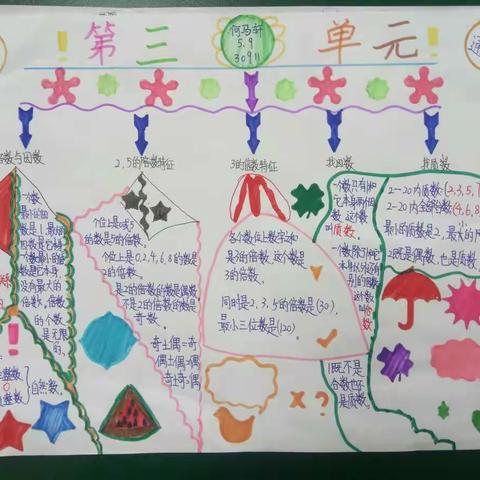 ！第三 单元！
何马轩
5.9
30911
倍数与因数
2,5的倍数特征
3的倍数特征
找因数
找质数
一个数
最小的因
数是1,最大的
因数是它本身
一个数最小的倍
数是它本身,
没有最大的
倍数。倍数
的个数
是无限
的。
自然数。
个位上是0或5
的数是5的倍数。
个位上是0,2,4,6,8的数是
2的倍数。
是2的倍数的数是偶数,
不是2的倍数的数是
奇数。
奇±偶=奇
偶±偶=偶
奇±奇=偶
各个数位上数字之和
是3的倍数,这个数是
3的倍数。
同时是2、3、5的倍数是(30),
最小三位数是(120)。
×？
一个数只有1和
它本身两个因
数,这个数
叫质数。
一个数除了1和它
本身以外还有
别的因数
这个数
叫合
数。
1既不是
合数也不
是质数。
2—20内质数(2,3,5,7
2—20内全部合数(4,6,8
最小的质数是2,
2既是偶数,也是质数